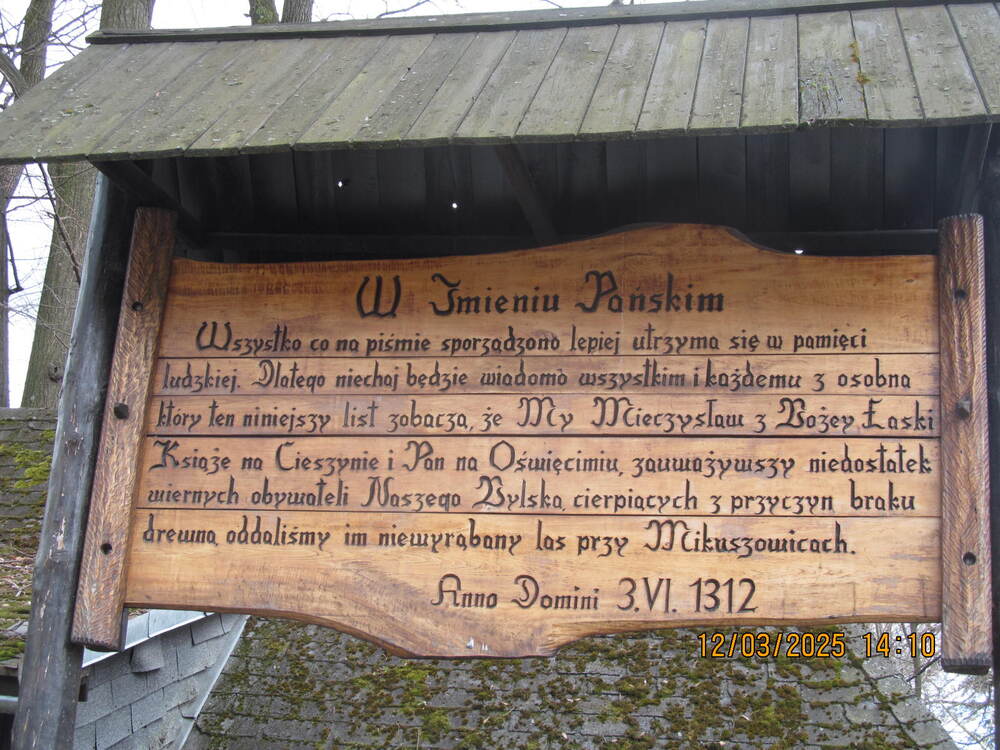 W Imieniu Pańskim
Wszystko co na piśmie sporządzono lepiej utrzyma się w pamięci
ludzkiej. Dlatego niechaj będzie wiadomo wszystkim i każdemu z osobna
który ten niniejszy list zobaczą, że My Mieczysław z Bożey Łaski
Książe na Cieszynie i Pan na Oświęcimiu, zauważywszy niedostatek
wiernych obywateli Naszego Bylska, cierpiących z przyczyn braku
drewna, oddaliśmy im niewyrąbany las przy Mikuszowicach.
Anno Domini 3.VI. 1312
12/03/2025 14:10